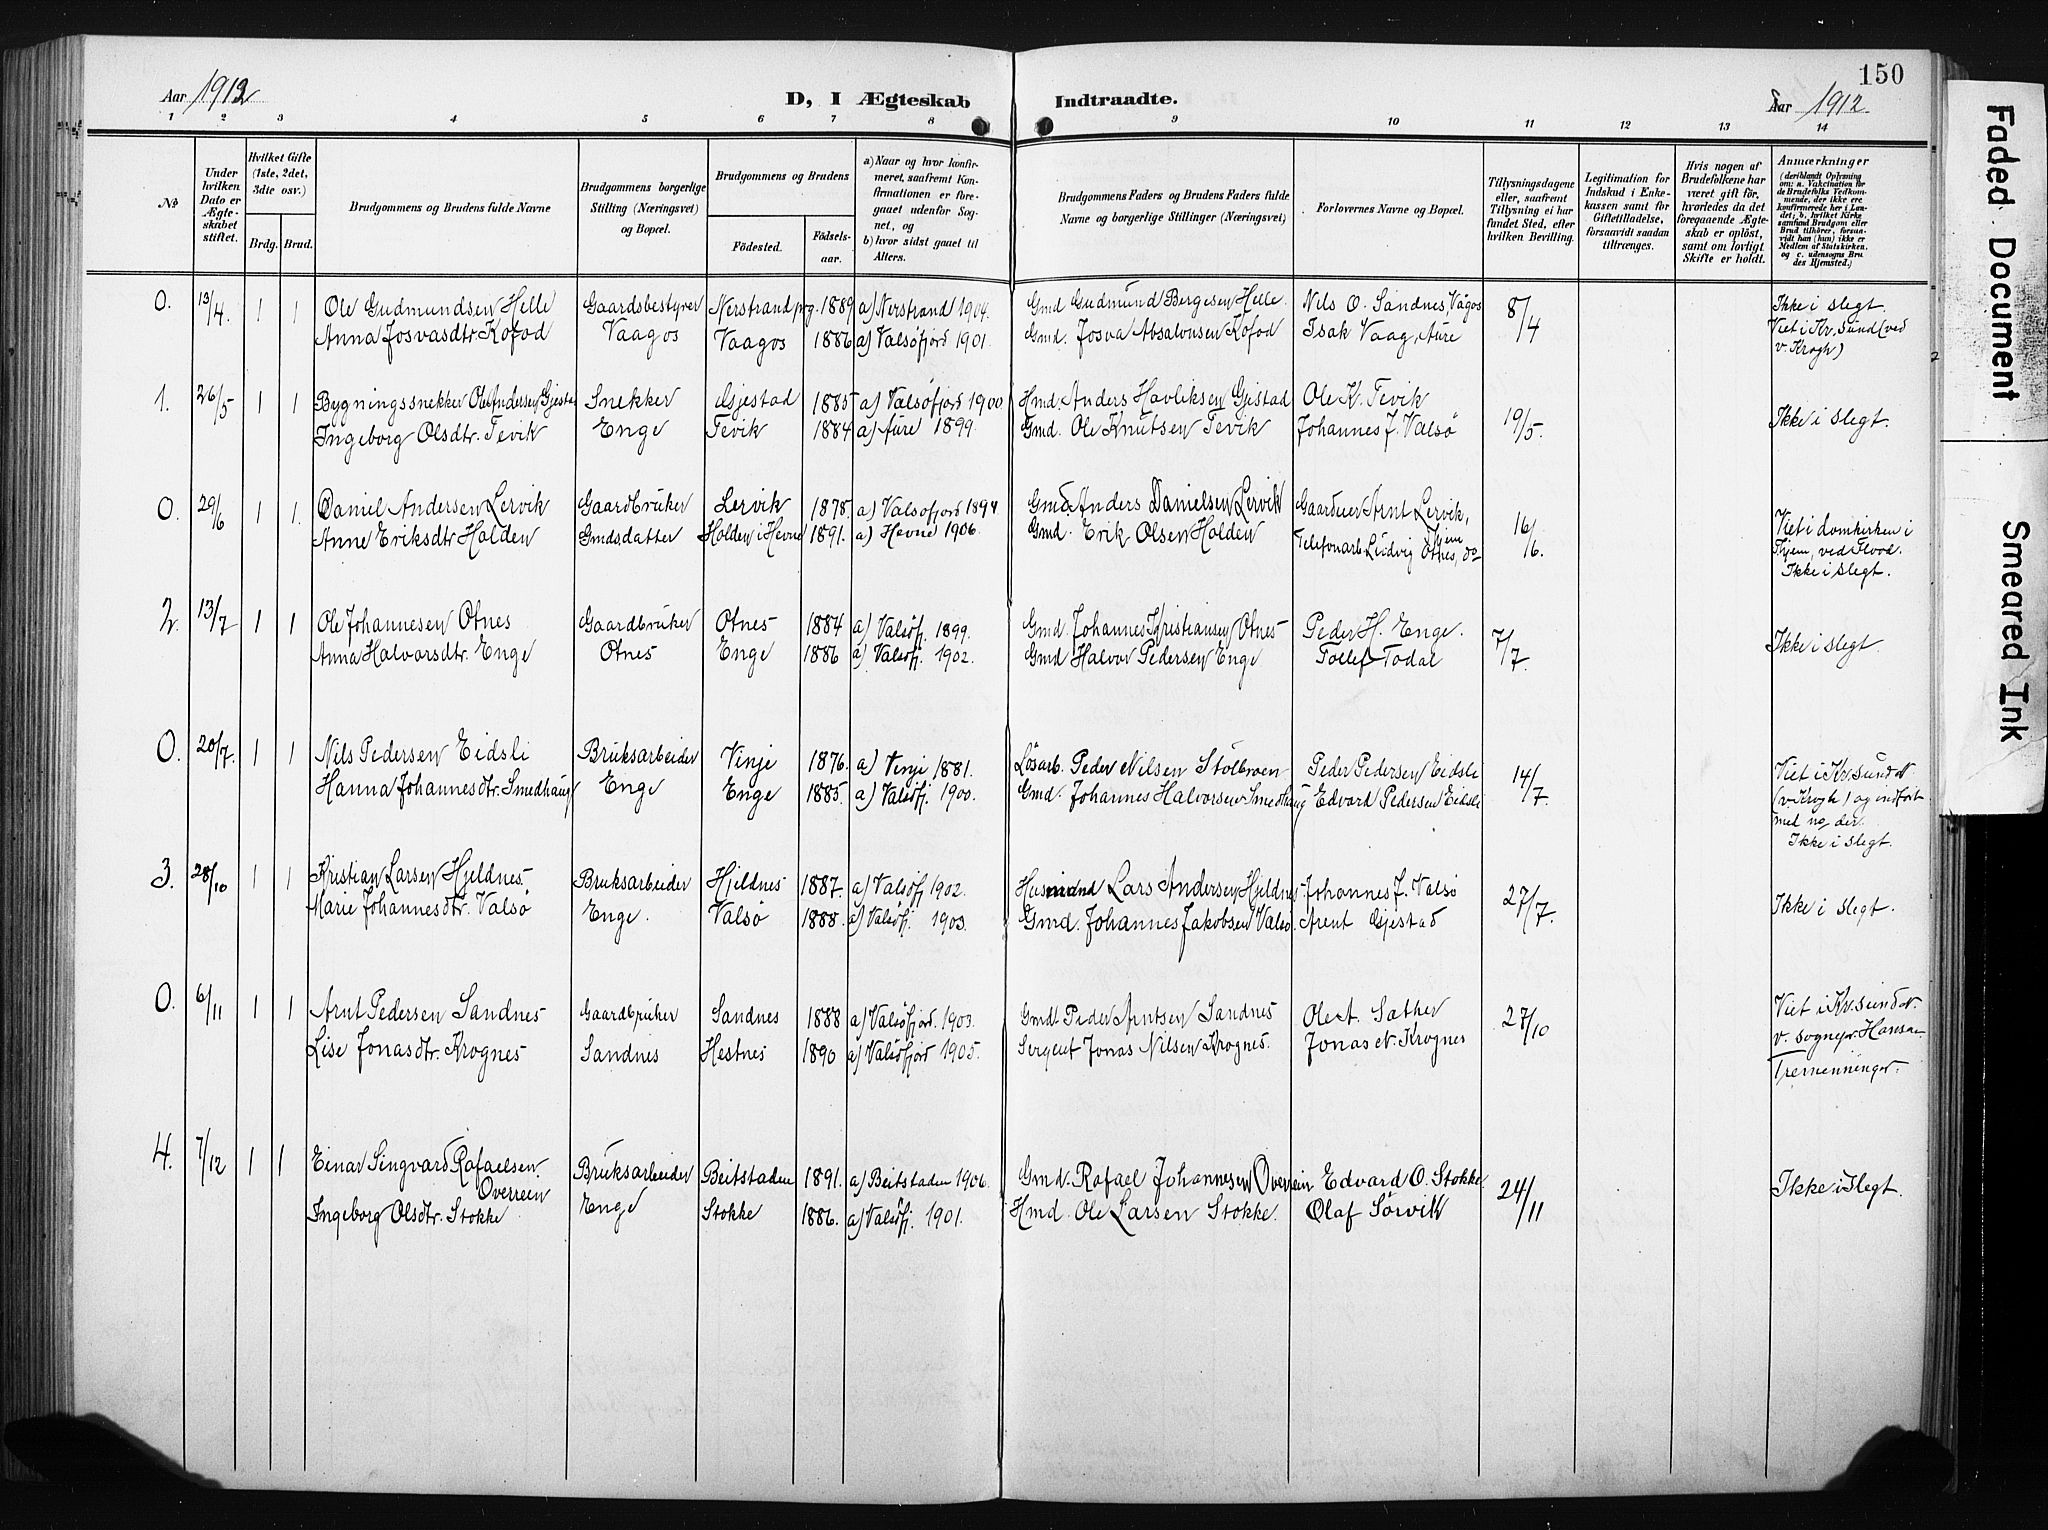 150
Aar 1912
D, I Ægteskab Indtraadte.
Aar 1912
1 2 3 4 5 6 7 8 9 10 11 12 13 14
No
Under hvilken Dato er Ægteskabet stiftet.
Hvilket Gifte (1ste, 2det, 3die osv.)
Brdg. Brud.
Brudgommens og Brudens fulde Navne
Brudgommens borgerlige Stilling (Næringsvei) og Bopæl.
Brudgommens og Brudens
Födested. Födselsaar.
a) Naar og hvor konfirmeret, saafremt Konfirmationen er foregaaet udenfor Sognet, og b) hvor sidst gaaet til Alters.
Brudgommens Faders og Brudens Faders fulde Navne og borgerlige Stillinger (Næringsvei)
Forlovernes Navne og Bopæl.
Tillysningsdagene eller, saafremt Tillysning ei har fundet Sted, efter hvilken Bevilling.
Legitimation for Indskud i Enkekassen samt for Giftetilladelse, forsaavidt saadan tiltrænges.
Hvis nogen af Brudefolkene har været gift för, hvorledes da det foregaaende Ægteskab er oplöst, samt om lovligt Skifte er holdt.
Anmærkninger (deriblandt Oplysning om: a. Vakcination för de Brudefolks Vedkommende, der ikke ere konfirmerede her i Landet; b. hvilket Kirkesamfund Brudgom eller Brud tilhörer, forsaavidt han (hun) ikke er Medlem af Statskirken. og c. udensogns Brudes Hjemsted.)
0. 13/4. 1 1 Ole Gudmundsen Helle Gaardsbestyrer Nerstrand prg. 1889 a) Nerstrand 1904. Gmd Gudmund Bergesen Helle. Nils O. Sandnes, Vågos 8/4 Ikke i slegt.
Anna Josvasdtr. Kofod Vaagos Vaagos 1886 a) Valsöfjord 1901. Gmd. Josva Absalonsen Kofod Isak Vaag, Aure Viet i Kr.sund (ved
v. Krogh)
1. 26/5 1 1 Bygningssnekker Ole Andersen Gjestad Snekker Gjestad 1885 a) Valsöfjord 1900. Hmd. Anders Havliksen Gjestad Ole K. Tevik 19/5. Ikke i slegt.
Ingeborg Olsdtr. Tevik Enge Tevik 1884 a) Aure 1899. Gmd. Ole Knutsen Tevik Johannes J. Valsö
0. 29/6 1 1. Daniel Andersen Lervik Gaardbruker Lervik 1878. a) Valsofjord 1894 Gmd Anders Danielsen Lervik Gaardeier Arnt Lervik, 16/6. Viet i domkirken i
Anne Eriksdtr Holden Gmdsdatter Holden i Hevne 1891. a) Hevne 1906. Gmd. Erik Olsen Holden Telefonarb. Ludvig Otnes, do Tjem, ved Flood.
Ikke i slegt.
2. 13/7 1 1 Ole Johannesen Otnes Gaardbruker Otnes 1884 a) Valsöfj. 1899. Gmd. Johannes Kristiansen Otnes Peder H. Enge. 7/7. Ikke i slegt.
Anna Halvorsdtr. Enge Otnes Enge 1886 a) Valsöfj. 1902. Gmd Halvor Pedersen Enge Tollef Todal
0. 20/7. 1 1 Nils Pedersen Eidsli Bruksarbeider Vinje 1876. a) Vinje 1881. Lösarb. Peder Nilsen Stölbroen Peder Pedersen Eidsli 14/7. Viet i Kr.sund N
Hanna Johannesdtr. Smedhaug Enge Enge 1885. a) Valsöfj. 1900. Gmd. Johannes Halvorsen Smedhaug Edvard Pedersen Eidsli (v. Krogh) og indfört
med no der.
Ikke i slegt.
3. 28/10 1 1 Kristian Larsen Hjeldnes Bruksarbeider Hjeldnes 1887. a) Valsöfj 1902. Husmand Lars Andersen Hjeldnes Johannes J. Valsö 27/7. Ikke i slegt.
Marie Johannesdtr. Valsö Enge. Valsö 1888. a) Valsöfj. 1903. Gmd. Johannes Jakobsen Valsö. Arent Gjestad
0. 6/11 1 1 Arnt Pedersen Sandnes Gaardbruker Sandnes 1888 a) Valsöfjord. 1903. Gmd. Peder Arntsen Sandnes Ole A. Sæther 27/10 Viet i Kr.sund N.
Lise Jonasdtr. Krognes Sandnes Hestnes 1890 a) Valsöfjord 1905. Sergeut Jonas Nilsen Krognes. Jonas N. Krognes v. sognepr. Hansae
Tremenninger.
4. 7/12 1 1 Einar Singvard Rafaelsen Overrein Bruksarbeider Beitstaden 1891. a) Beitstaden 1906. Gmd. Rafael Johannesen Overrein Edvard O. Stokke 24/11 Ikke i slegt.
Ingeborg Olsdtr. Stokke Enge Stokke 1886. a) Valsöfj. 1901. Hmd. Ole Larsen Stokke. Olaf Sörvik
Faded Document
Smeared Ink